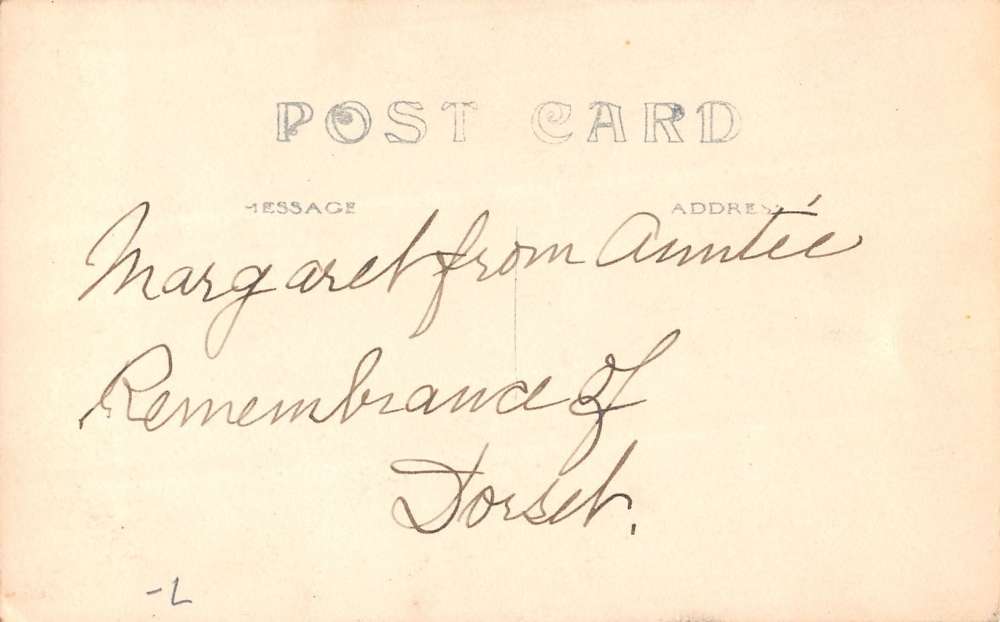 POST CARD
MESSAGE ADDRESS
Margaret from Auntie
Remembrance of
Dorset.
-L